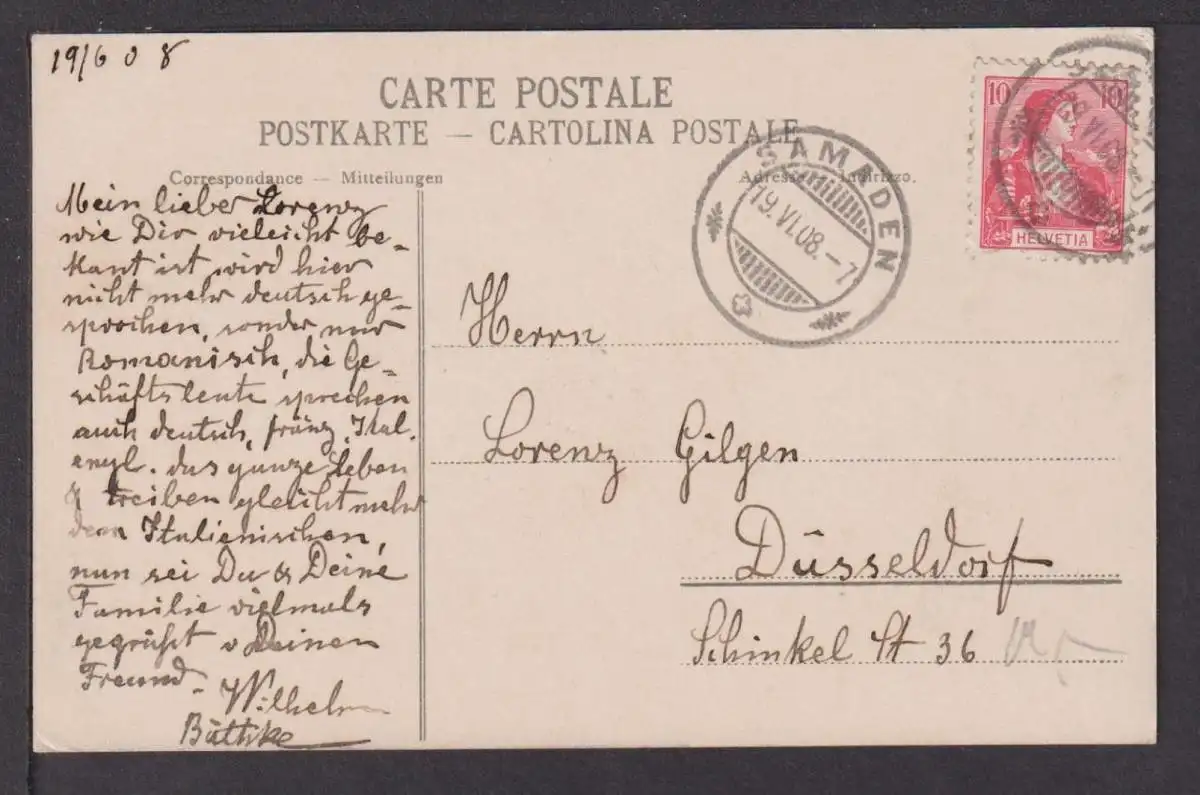 19/6 08
CARTE POSTALE
POSTKARTE — CARTOLINA POSTALE
Correspondance — Mitteilungen
Adresse Indirizzo.
Mein lieber Lorenz
wie Dir vieleicht be-
kant ist wird hier
nicht mehr deutsch ge-
sprochen, sonder nur
Romanisch, die Ge-
schäftsleute sprechen
auch deutsch, franz, Ital.
engl. das ganze Leben
& treiben gleicht mehr
dem Italienischen,
nun sei Du & Deine
Familie vielmals
gegrüßt v Deinen
Freund
Wilhelm
Bäthke
SAMADEN
19.VI.08.-7
10 10
HELVETIA
Herrn
Lorenz Gilgen
Düsseldorf
Schinkel St 36